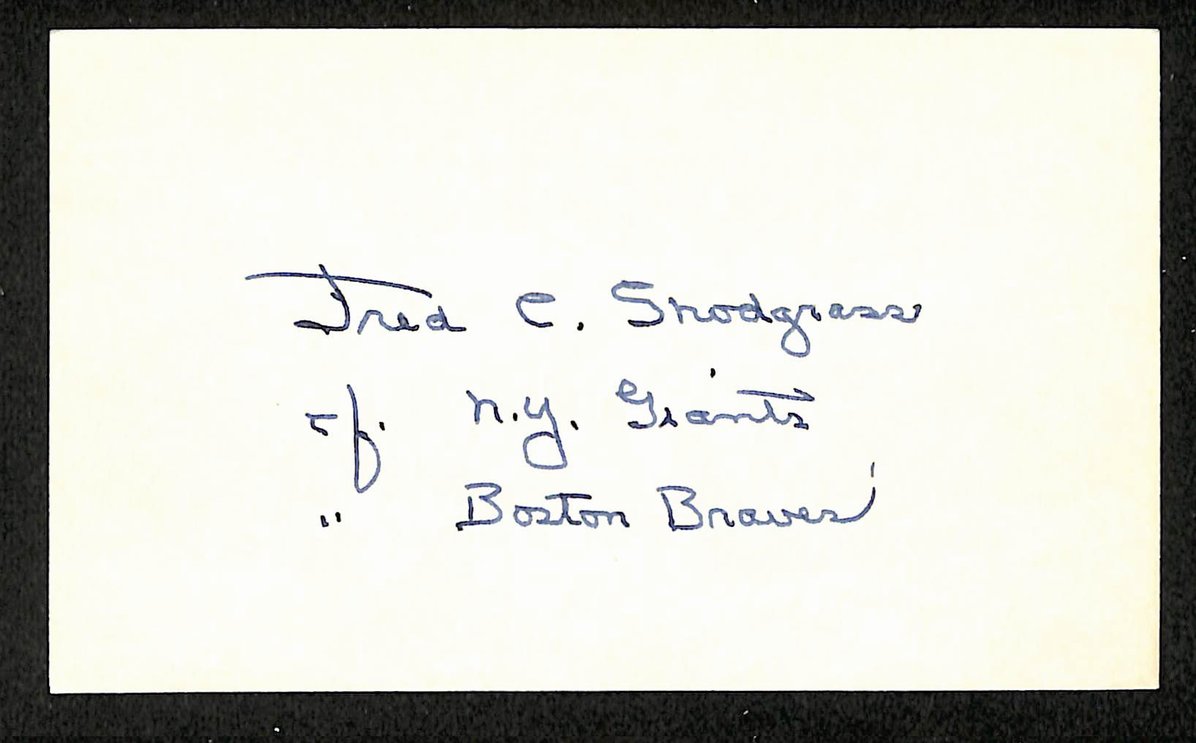 Fred C. Snodgrass
cf. N.Y. Giants
" Boston Braves